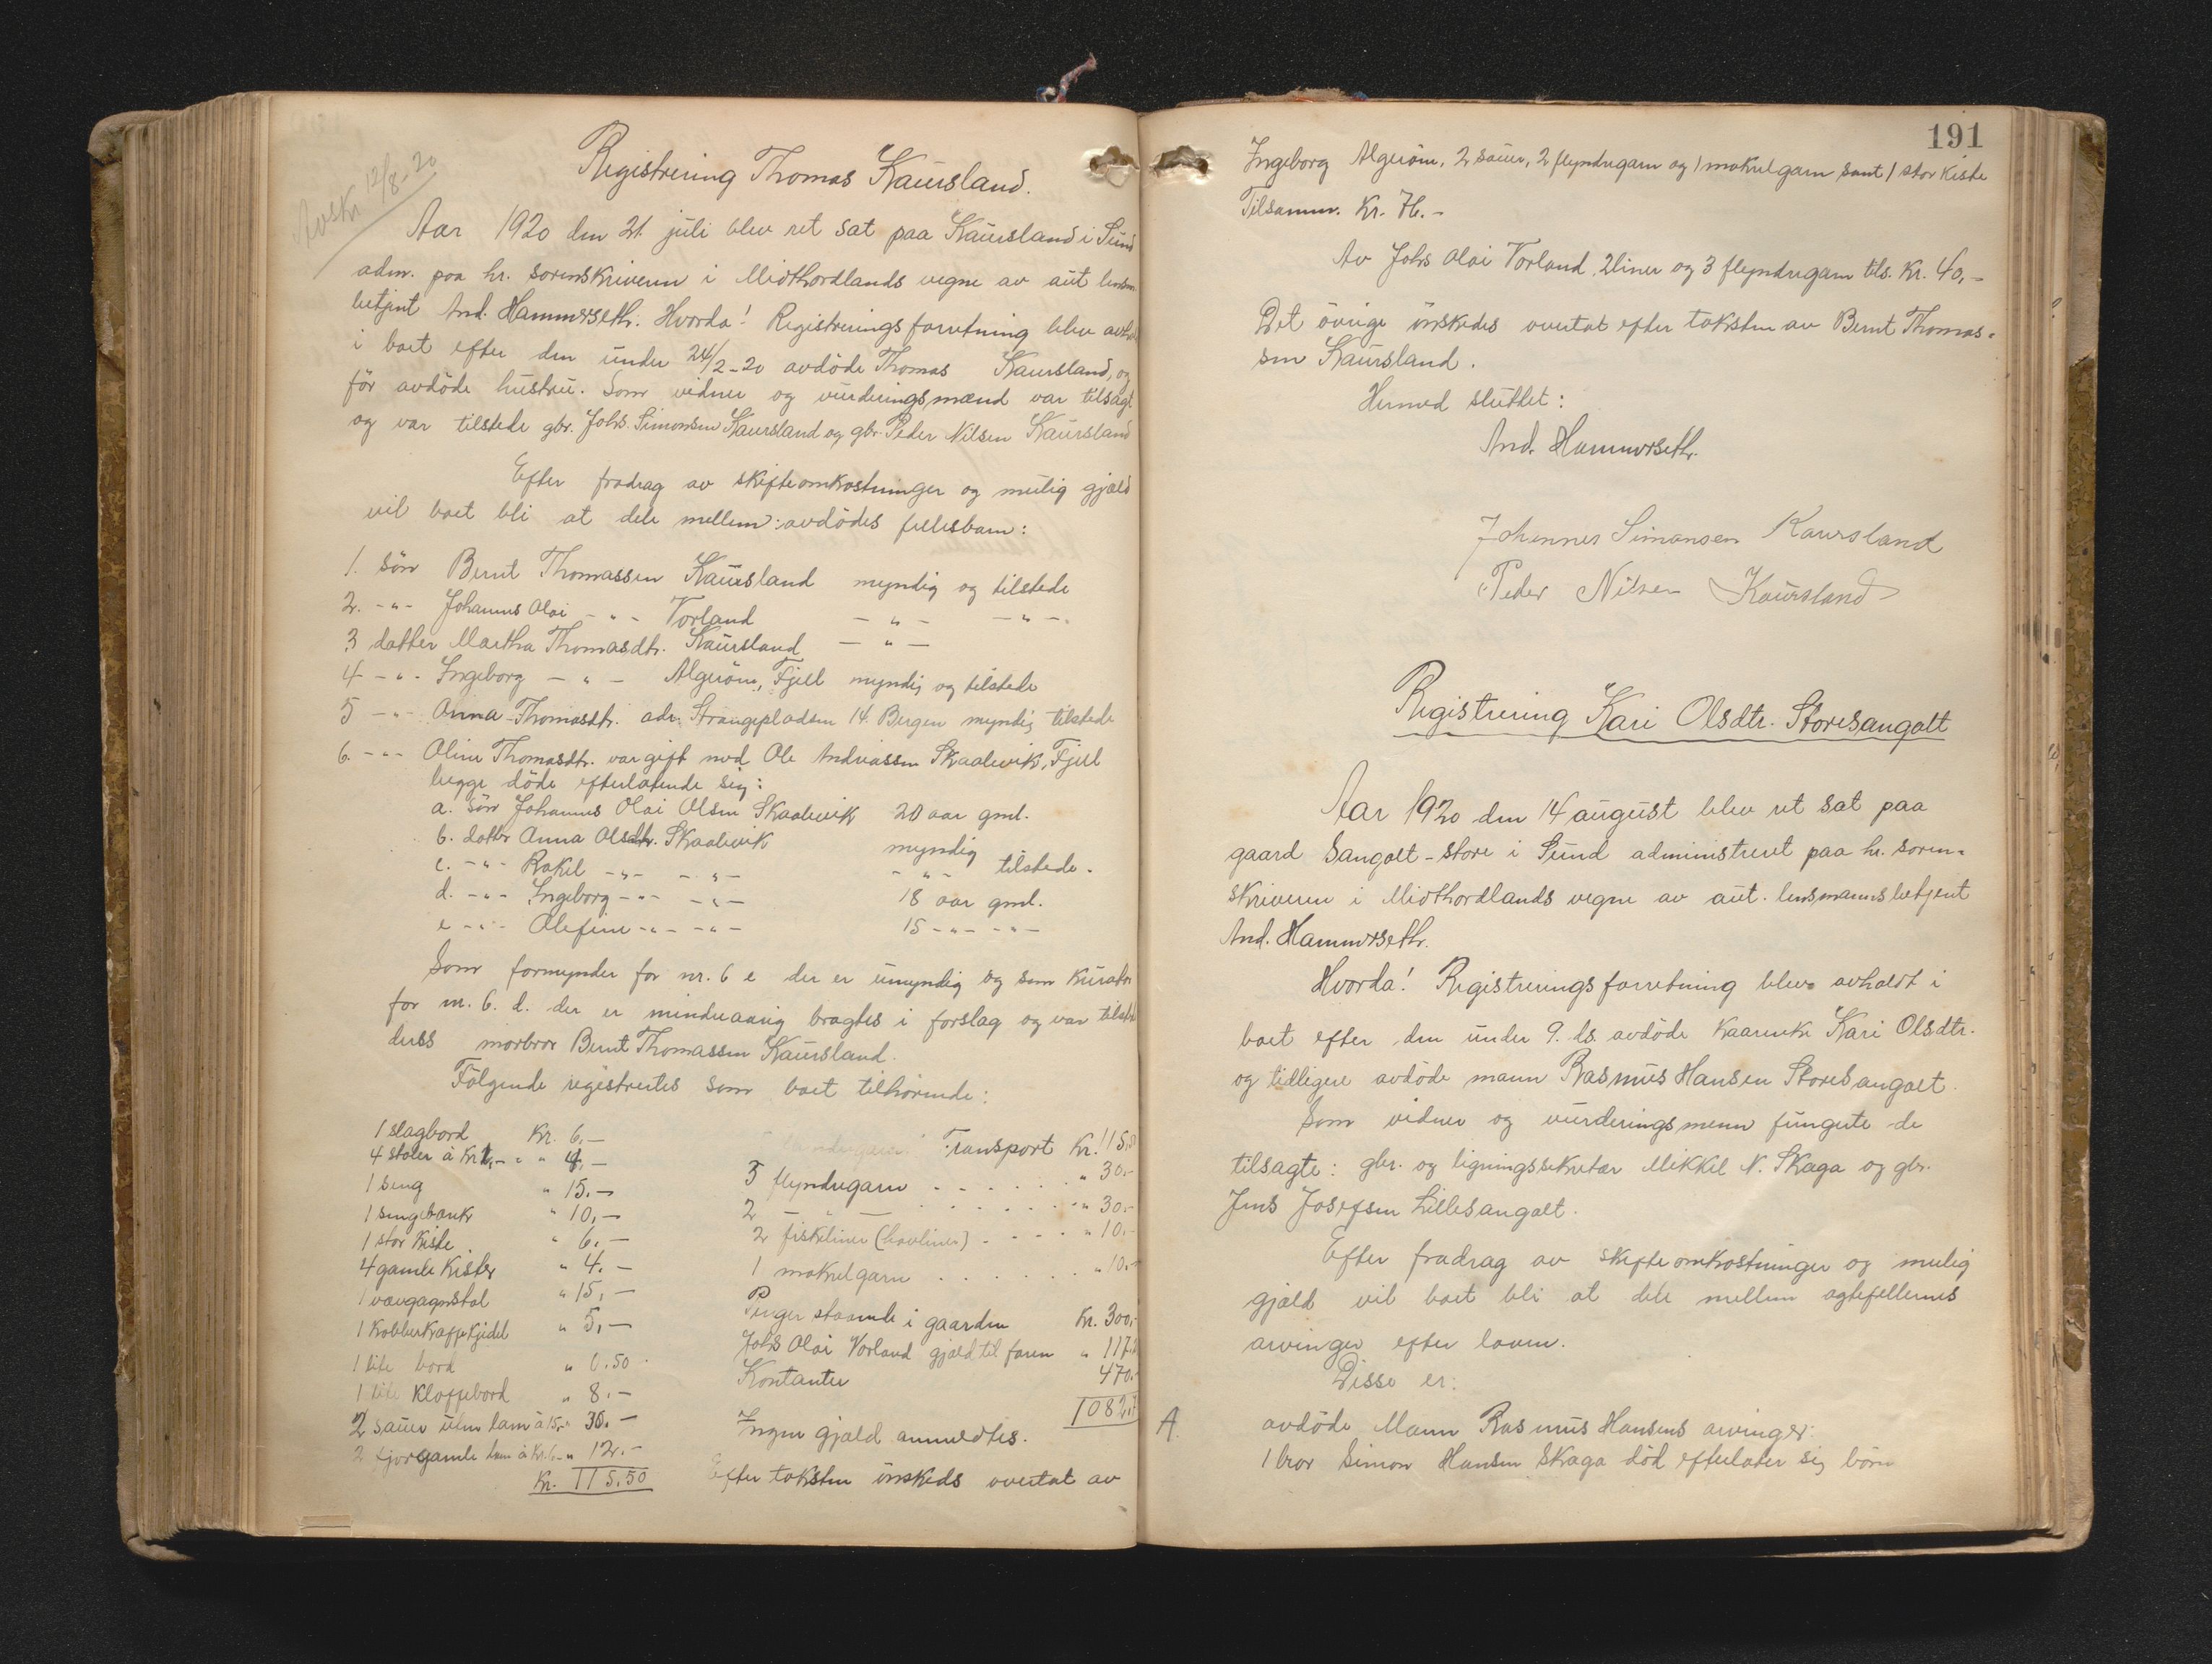 Avskr 12/8-20
Registrering Thomas Kaursland.
Aar 1920 den 21. juli blev ret sat paa Kaursland i Sund
adm. paa hr. sorenskriveren i Midthordlands vegne av aut lensm.
betjent And. Hammerseth. Hvorda! Registreringsforretning blev avholdt
i boet efter den under 24/2-20 avdöde Thomas Kaursland, og
för avdöde hustru. Som vidner og vurderingsmænd var tilsagt
og var tilstede gbr. Johs. Simonsen Kaursland og gbr. Peder Nilsen Kaursland
Efter fradrag av skifteomkostninger og mulig gjæld
vil boet bli at dele mellem: avdödes fellesbarn:
1. sön Bernt Thomassen Kaursland myndig og tilstede
2. -"- Johannes Olai -"- Vorland -"- -"-.
3 datter Martha Thomasdtr. Kaursland -"-
4 -"- Ingeborg -"- Algeröen, Fjell myndig og tilstede
5 -"- Anna Thomasdtr. adr. Strangepladsen 14. Bergen myndig tilstede
6. -"- Oline Thomasdtr. var gift med Ole Andreassen Skaalevik, Fjell
begge döde efterlatende sig:
a. sön Johannes Olai Olsen Skaalevik 20 aar gml.
b. datter Anna Olsdtr. Skaalevik myndig
c. -"- Rakel -"- -"- -"- tilstede.
d. -"- Ingeborg -"- -"- 18 aar gml.
e -"- Olefine -"- -"- 15 -"- -"-
Som formynder for nr. 6 e der er umyndig og som kurator
for nr. 6. d. der er mindreaarig bragtes i forslag og var tilstede
deres morbror Bernt Thomassen Kaursland.
Fölgende registrertes som boet tilhörende:
1 slagbord Kr. 6,-
4 stoler à Kr 1,- " " 4,-
1 seng " 15.-
1 sengebænk " 10,-
1 stor kiste " 6.-
4 gamle kister " 4.-
1 vævgagnstol " 15,-
1 kobberkaffekjedel " 5,-
1 lite bord " 0.50
1 lite klaffebord " 8.-
2 sauer uten lam à 15,- " 30.-
2 fjorgamle lam à Kr. 6- " 12.-
Kr. 115.50
Transport Kr. 115,50
5 flyndregarn . . . . . . " 30.-
2 -"- . . . . . . " 30.-
2 fiskeliner (havliner) . . . . " 10.-
1 makrelgarn . . . . . . " 10.-
Penger staaende i gaarden Kr. 300,-
Johs Olai Vorland gjæld til faren " 117.
Kontanter 470.-
1082.
Ingen gjæld anmeldtes.
Efter taksten önskeds overtat av
191
Ingeborg Algeröen, 2 sauer, 2 flyndregarn og 1 makrelgarn samt 1 stor kiste
Tilsamm. Kr. 76.-
Av Johs Olai Vorland, 2 liner og 3 flyndregarn tils. Kr. 40,-
Det övrige önskedes overtat efter taksten av Bernt Thomas=
sen Kaursland.
Hermed sluttet:
And. Hammerseth.
Johannes Simonsen Kaursland
Peder Nilsen Kaursland
Registrering Kari Olsdtr. Storesangolt
Aar 1920 den 14 august blev ret sat paa
gaard Sangolt-store i Sund administreret paa hr. soren=
skriveren i Midthordlands vegne av aut. lensmannsbetjent
And. Hammerseth.
Hvorda! Registreringsforretning blev avholdt i
boet efter den under 9. ds. avdöde kaarenke Kari Olsdtr.
og tidligere avdöde mann Rasmus Hansen Storesangolt.
Som vidner og vurderingsmenn fungerte de
tilsagte: gbr. og ligningssekretær Mikkel N. Skaga og gbr.
Jens Josefsen Lillesangolt.
Efter fradrag av skifteomkostninger og mulig
gjæld vil boet bli at dele mellem egtefellernes
arvinger efter loven.
Disse er:
A. avdöde Mann Rasmus Hansens arvinger:
1 bror Simon Hansen Skaga död efterlater sig börn